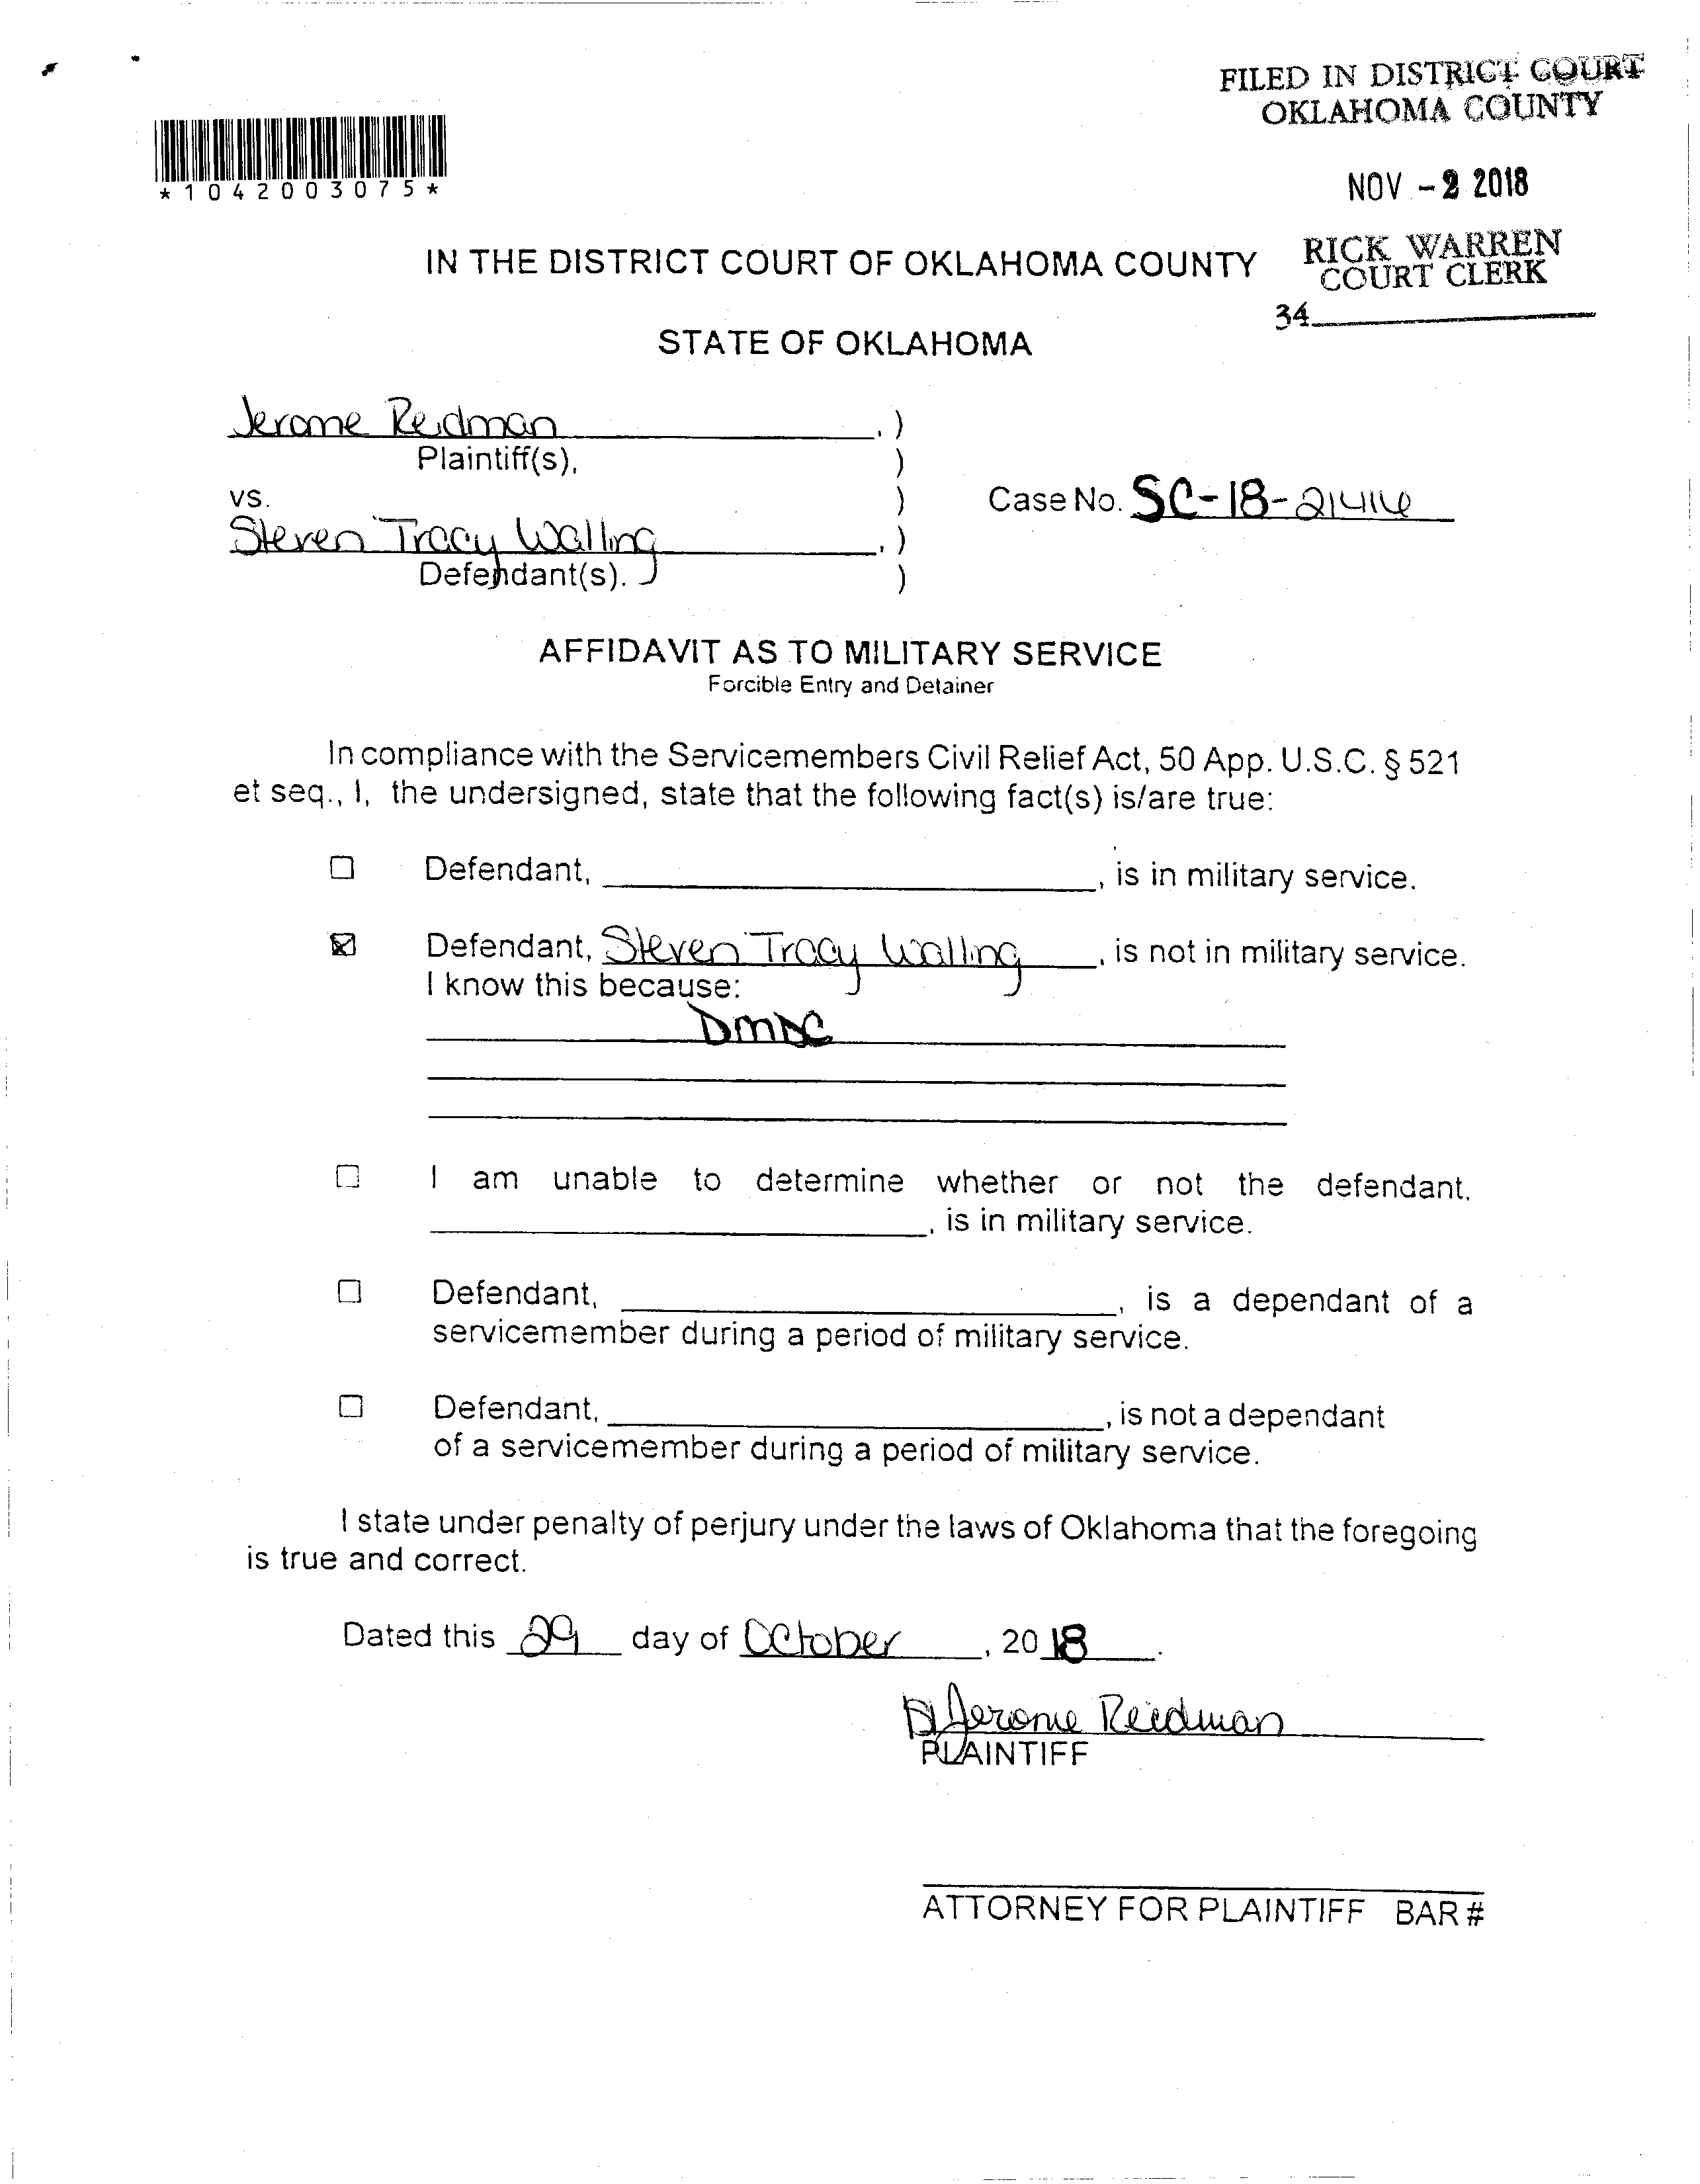 FILED IN DISTRICT COURT
OKLAHOMA COUNTY
*1042003075*
NOV - 2 2018
RICK WARREN
COURT CLERK
34
IN THE DISTRICT COURT OF OKLAHOMA COUNTY
STATE OF OKLAHOMA
Jerome Reidman, )
Plaintiff(s), )
vs. )
Case No. SC-18-21416
Steven Tracy Walling, )
Defendant(s). )
AFFIDAVIT AS TO MILITARY SERVICE
Forcible Entry and Detainer
In compliance with the Servicemembers Civil Relief Act, 50 App. U.S.C. § 521
et seq., I, the undersigned, state that the following fact(s) is/are true:
☐ Defendant, , is in military service.
☒ Defendant, Steven Tracy Walling, is not in military service.
I know this because:
DMDC
☐ I am unable to determine whether or not the defendant,
, is in military service.
☐ Defendant, , is a dependant of a
servicemember during a period of military service.
☐ Defendant, , is not a dependant
of a servicemember during a period of military service.
I state under penalty of perjury under the laws of Oklahoma that the foregoing
is true and correct.
Dated this 29 day of October, 20 18.
Jerome Reidman
PLAINTIFF
ATTORNEY FOR PLAINTIFF BAR #